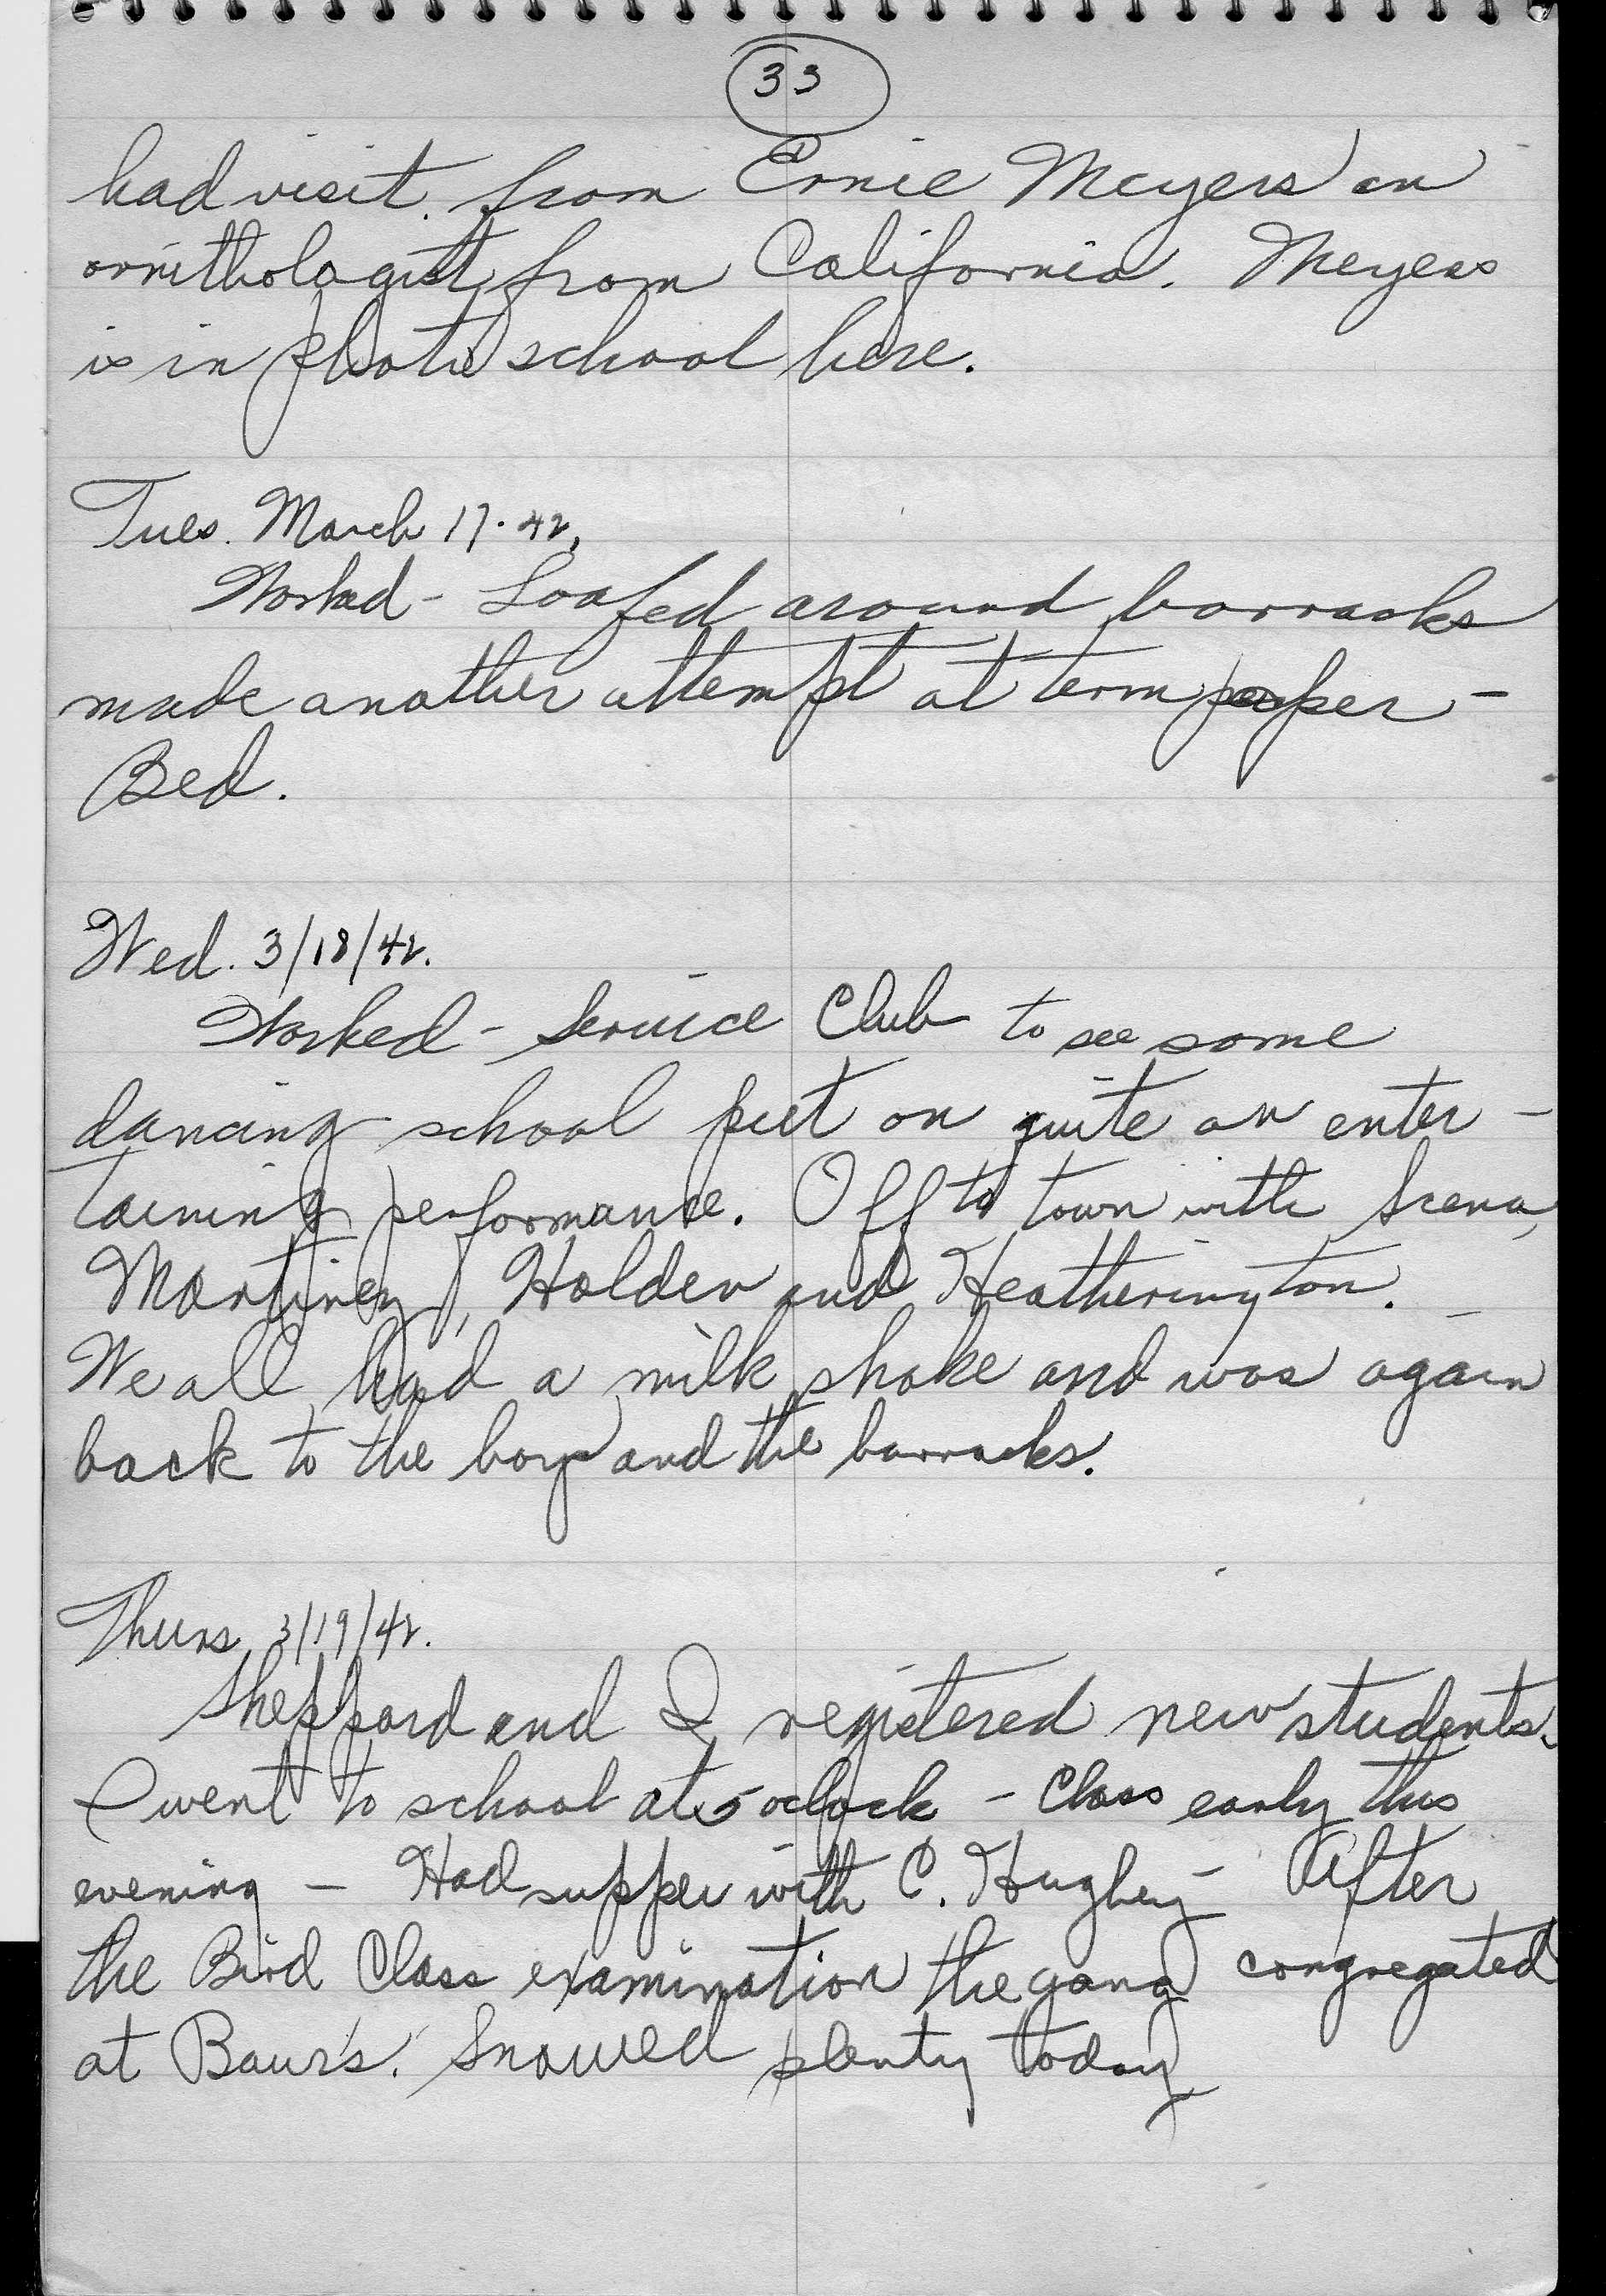 33
had visit from Ernie Meyers an
ornithologist from California. Meyers
is in photo school here.
Tues. March 17. 42,
Worked - Loafed around barracks
made another attempt at term paper -
Bed.
Wed. 3/18/42.
Worked - Service Club to see some
dancing school put on quite an enter -
taining performance. Off to town with
Martinez, Holden and Heatherington.
We all had a milk shake and was again
back to the boys and the barracks.
Thurs 3/19/42.
Sheppard and I registered new students.
I went to school at 5 oclock - Class early this
evening - Had supper with C. Hughey - After
the Bird Class examination the gang congregated
at Baur's. Snowed plenty today